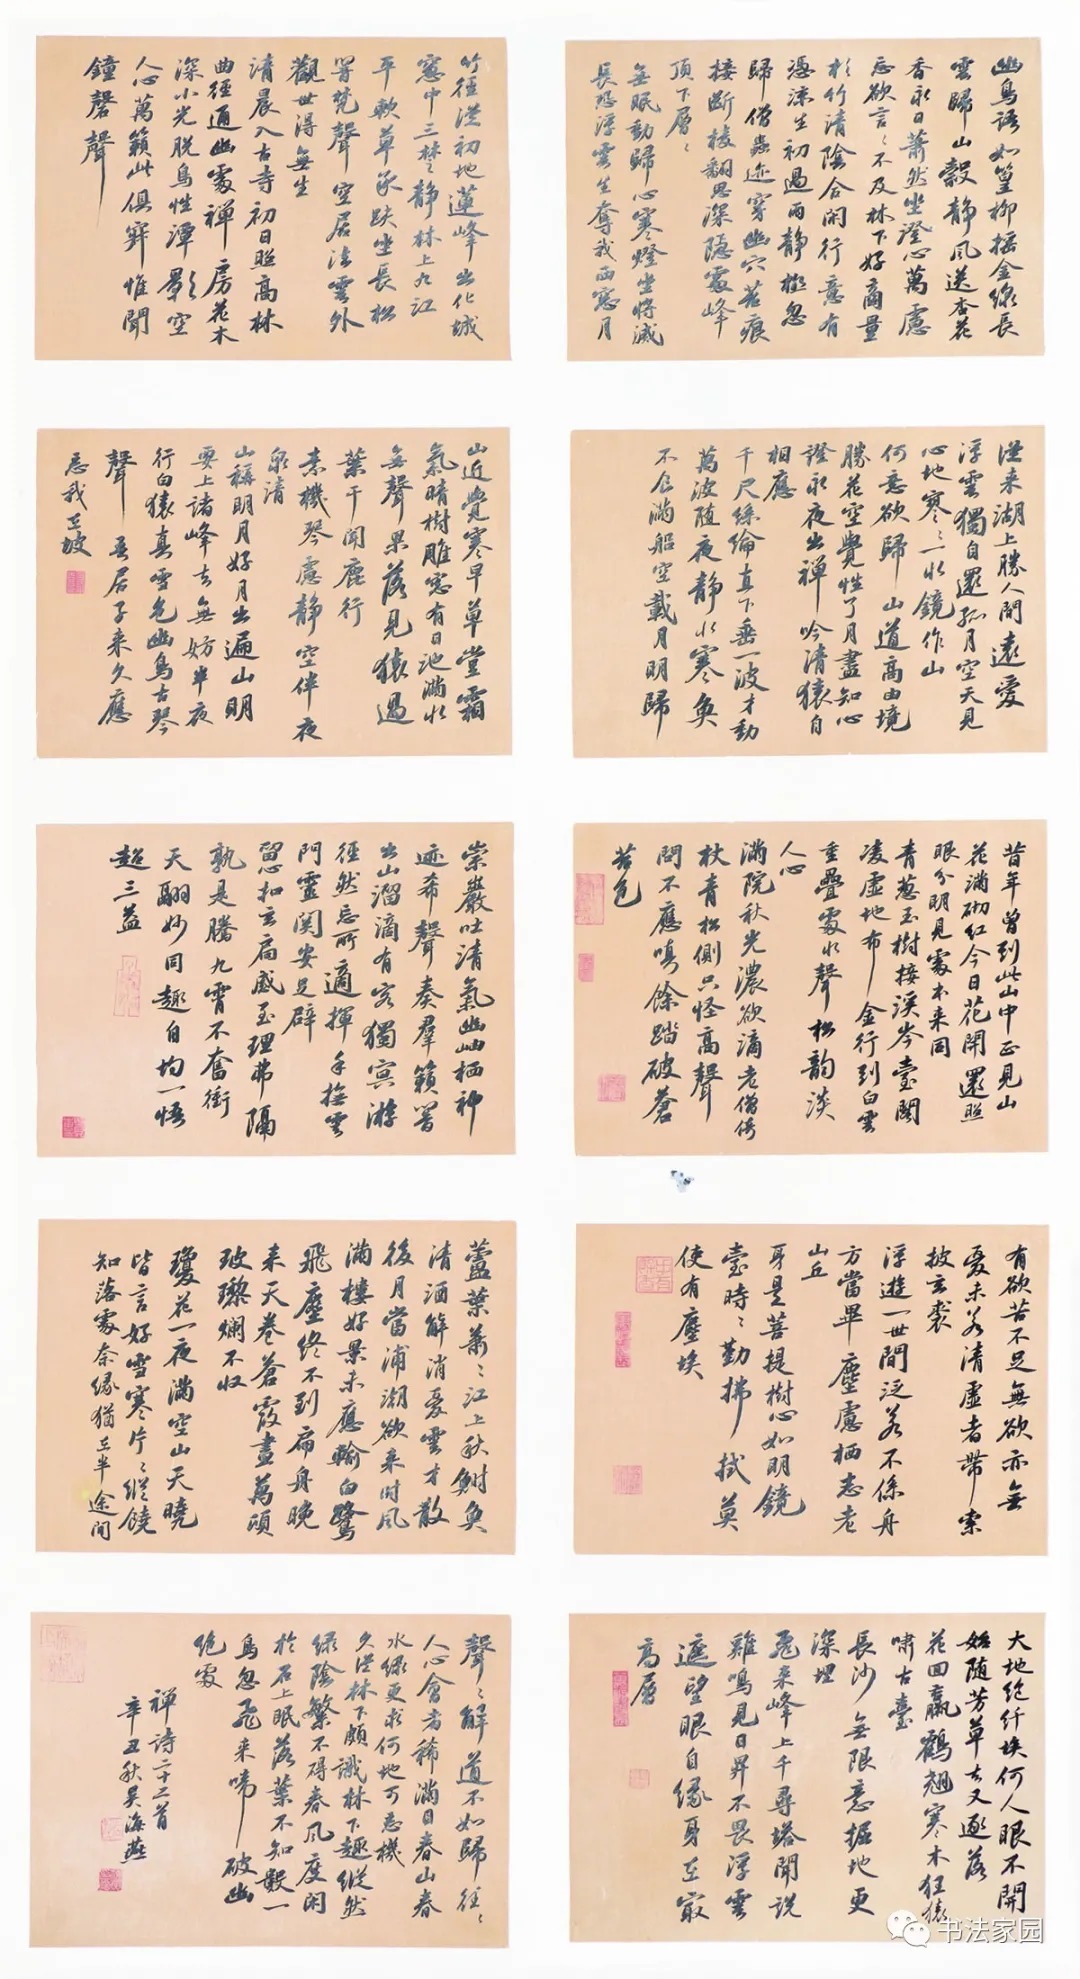 幽鳥語如篁柳摇金線長
雲歸山穀静風送杏花
香永日蕭然坐澄心萬慮
忘欲言〻不及林下好商量
杉竹清陰合閑行意有
憑凉生初過雨静極忽
歸僧蟲迹穿幽穴苔痕
接斷棱翻思深隱處峰
頂下層〻
無眠動歸心寒燈坐將滅
長恐浮雲生奪我西窗月
竹徑從初地蓮峰出化城
窗中三楚静林上九江
平軟草承趺坐長松
響梵聲空居法雲外
觀世得無生
清晨入古寺初日照高林
曲徑通幽處禅房花木
深山光脱鳥性潭影空
人心萬籟此俱寂惟聞
鐘磬聲
從来湖上勝人間遠愛
浮雲獨自還孤月空天見
心地寒〻一水鏡作山
何意欲歸山道高由境
勝花空覺性了月盡知心
證永夜出禅吟清猿自
相應
千尺絲綸直下垂一波才動
萬波随夜静水寒魚
不食滿船空載月明歸
山近覺寒早草堂霜
氣晴樹雕窗有日池滿水
無聲果落見猿過
葉干聞鹿行
素機琴慮静空伴夜
泉清
山稱明月好月出遍山明
要上諸峰去無妨半夜
行白猿真雪色幽鳥古琴
聲吾居子来久應
忘我在坡
昔年曾到此山中正見山
花滿砌紅今日花開還照
眼分明見處本来同
青葱玉樹接溪岑臺閣
凌虚地布金行到白雲
重疊處水聲松韵淡
人心
滿院秋光濃欲滴老僧倚
杖青松側只怪高聲
問不應嗔餘踏破蒼
苔色
崇巖吐清氣幽岫栖神
迹希聲奏群籟響
出山溜滴有客獨冥游
徑然忘所適揮手撫雲
門靈関安足辟
留心扣玄扃感至理弗隔
孰是騰九霄不奮衝
天翮妙同趣自均一悟
超三益
有欲苦不足無欲亦無
憂未若清虚者帶索
披玄裘
浮遊一世間泛若不係舟
方當畢塵慮栖志老
山丘
身是菩提樹心如明鏡
臺時〻勤拂拭莫
使有塵埃
蘆葉蕭〻江上秋鮒魚
清酒解消憂雲才散
後月當浦潮欲来時風
滿樓好景未應輸白鷺
飛塵終不到扁舟晚
来天卷蒼霞晝萬頃
玻瓈爛不収
瓊花一夜滿空山天曉
皆言好雪寒片〻縱饒
知落處奈緣猶在半途間
大地絶纤埃何人眼不開
始随芳草去又逐落
花回羸鶴翘寒木狂猿
嘯古臺
長沙無限意掘地更
深埋
飛来峰上千尋塔聞説
雞鳴見日昇不畏浮雲
遮望眼自缘身在最
高層
聲〻解道不如歸往〻
人心會者稀滿目春山春
水绿更求何地可忘機
久從林下頗識林下趣縱然
绿陰繁不碍春風度閑
於石上眠落葉不知數一
鳥忽飛来啼破幽
绝處
禅詩二十二首
辛丑秋吴海燕
书法家园